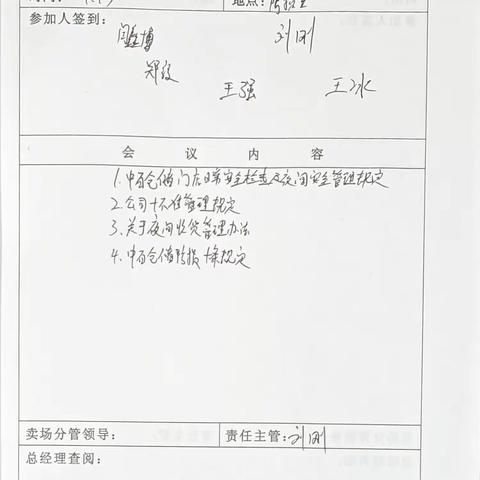 地点:
参加人签到:
刘刚
王强 王冰
会 议 内 容
1. 中百仓储门店日常安全检查及夜间安全管理规定
2. 公司十不准管理规定
3. 关于夜间收货管理办法
4. 中百仓储防损十条规定
卖场分管领导: 责任主管: 刘刚
总经理查阅: